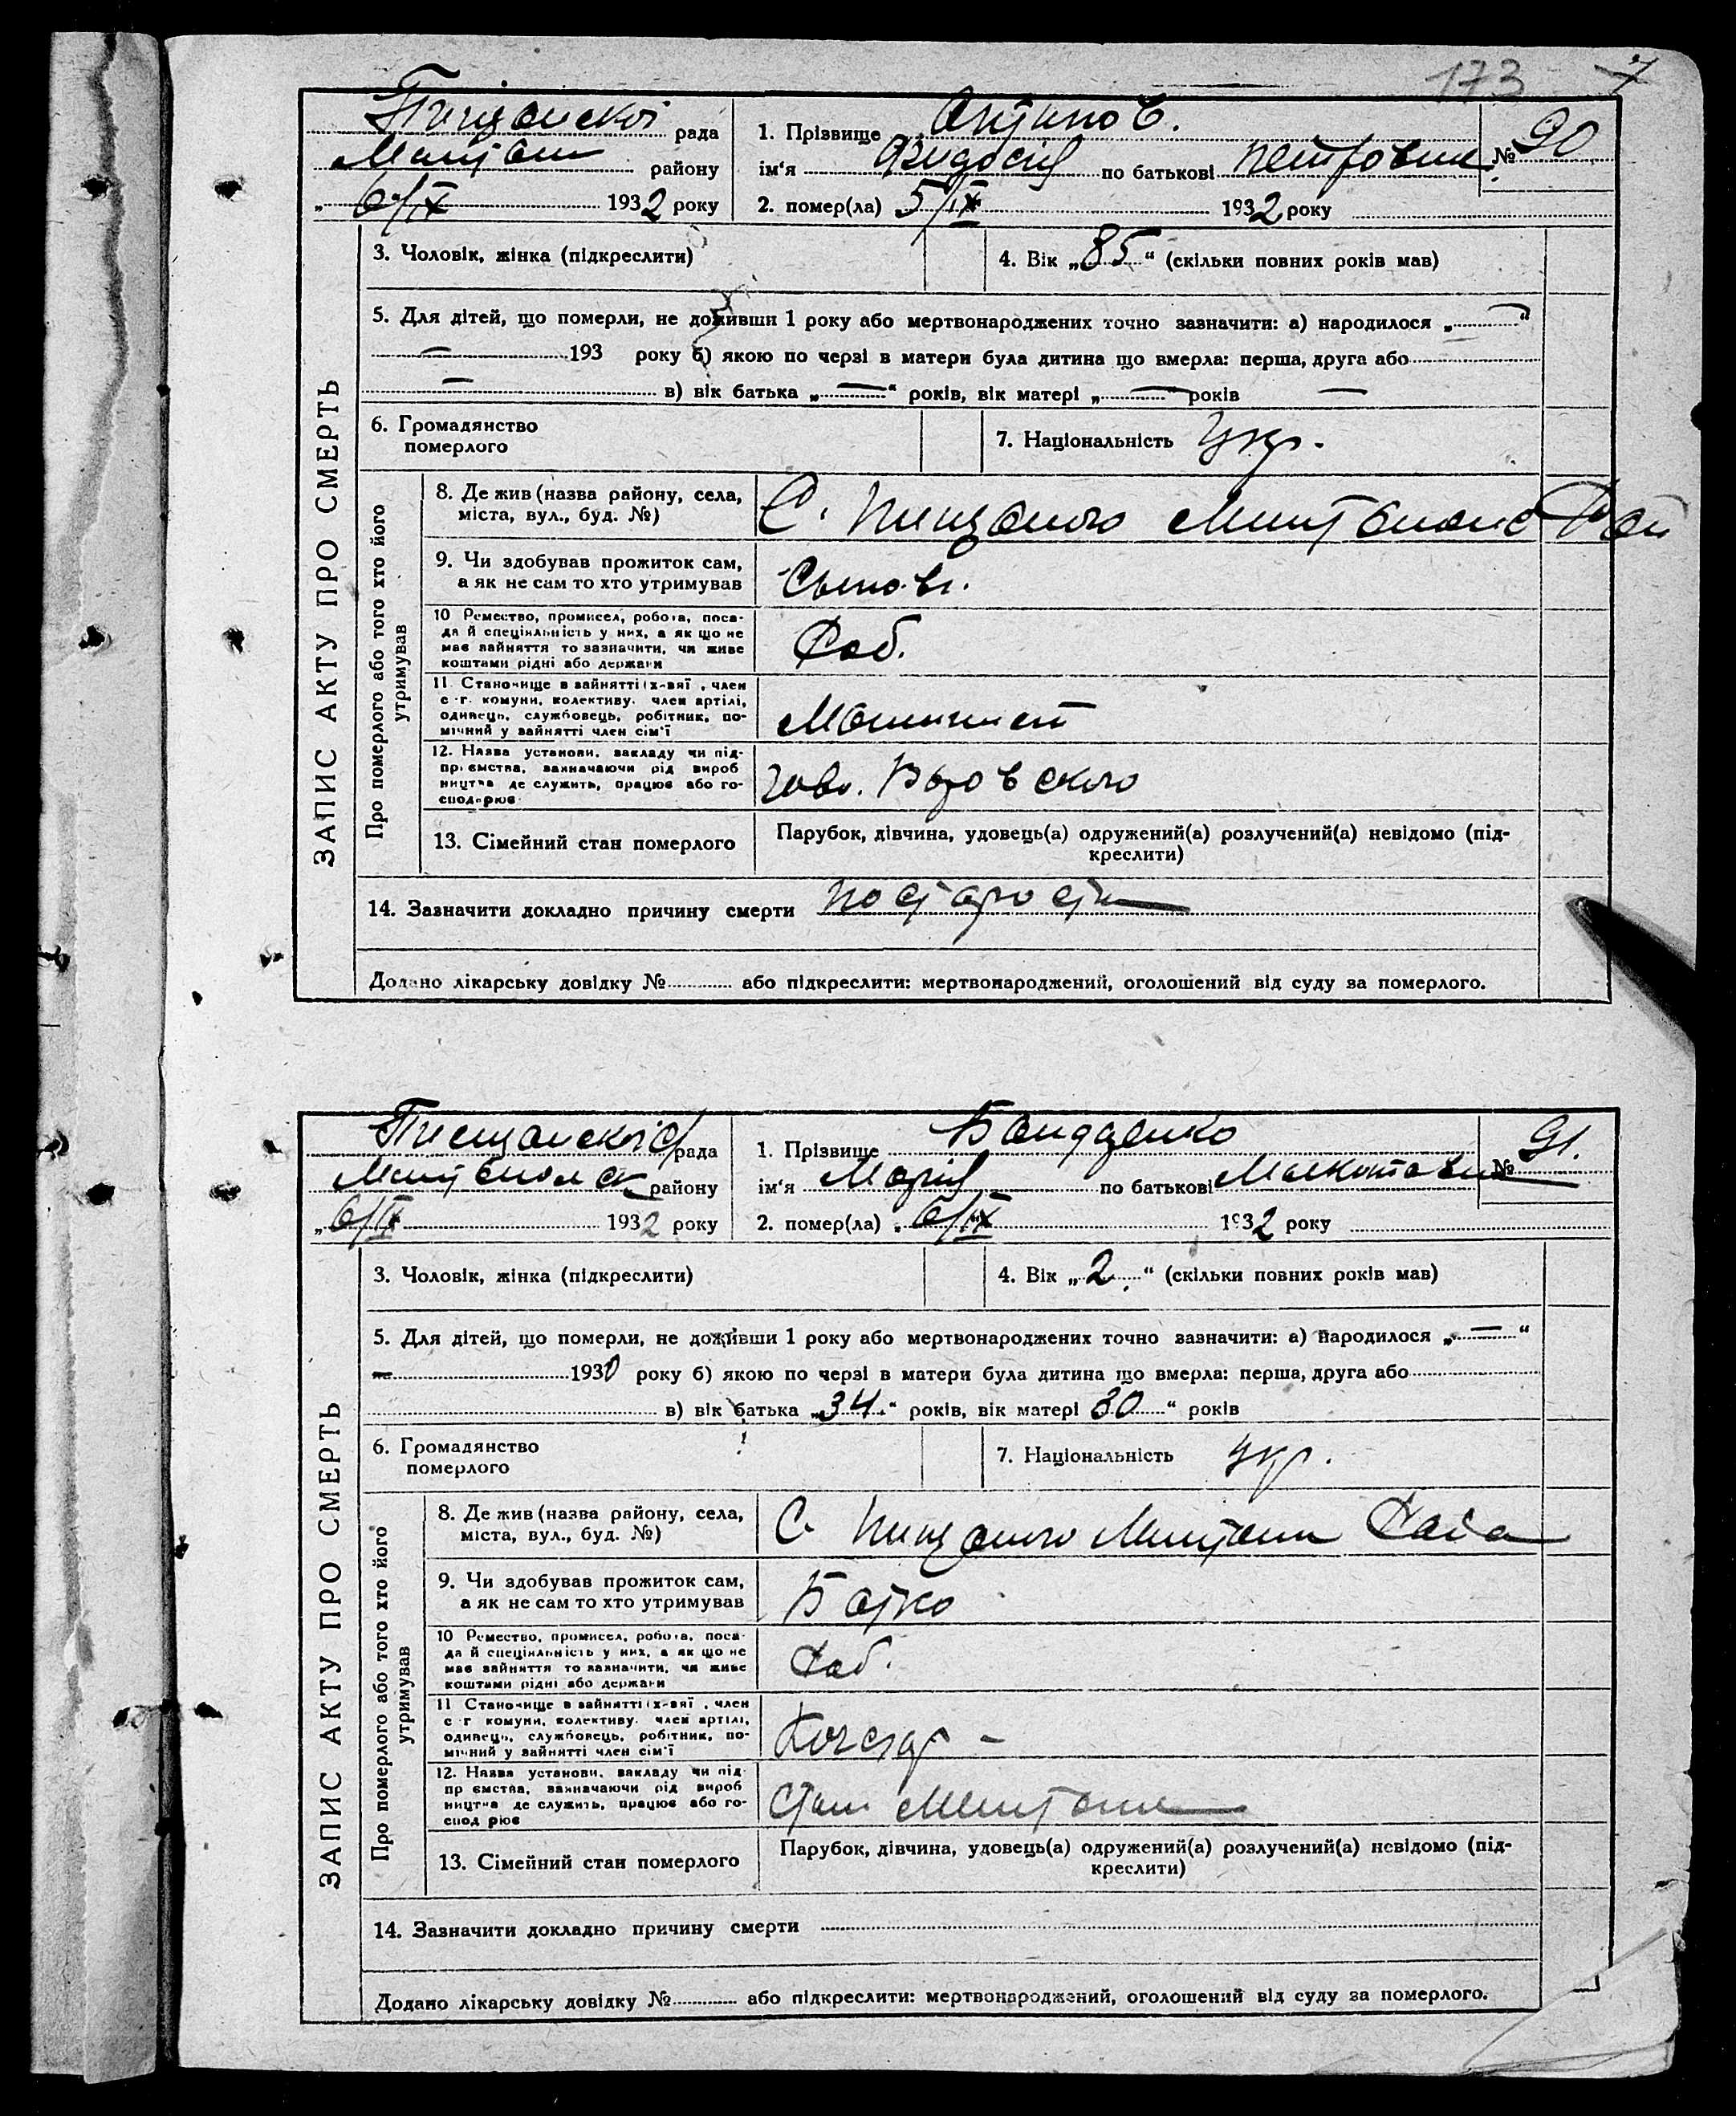 173
7
Пищанскої рада
району
6/IX 1932 року
1. Прізвище Антипов.
№ 90
ім'я Физдосій по батькові Петрович
2. помер(ла) 5/IX 1932 року
ЗАПИС АКТУ ПРО СМЕРТЬ
3. Чоловік, жінка (підкреслити)
4. Вік „85“ (скільки повних років мав)
5. Для дітей, що померли, не доживши 1 року або мертвонароджених точно зазначити: а) народилося „—“
— 193 року б) якою по черзі в матери була дитина що вмерла: перша, друга або
— в) вік батька „—“ років, вік матері „—“ років —
6. Громадянство
померлого
7. Національність Укр.
Про померлого або того хто його
утримував
8. Де жив (назва району, села,
міста, вул., буд. №)
С. Пищаного
9. Чи здобував прожиток сам,
а як не сам то хто утримував
10 Ремество, промисел, робота, поса-
да й спеціяльність у них, а як що не
має зайняття то зазначити, чи живе
коштами рідні або держави
Раб.
11. Становище в зайнятті (х-ваї, член
с.-г. комуни, колективу, член артілі,
одинець, службовець, робітник, по-
мічний у зайнятті член сім'ї
Машинист
12. Назва установи, закладу чи під-
приємства, зазначаючи рід вироб
ництва де служить, працює або го-
сподарює
13. Сімейний стан померлого
Парубок, дівчина, удовець(а) одружений(а) розлучений(а) невідомо (під-
креслити)
14. Зазначити докладно причину смерти по старости
Додано лікарську довідку № або підкреслити: мертвонароджений, оголошений від суду за померлого.
рада
району
6/IX 1932 року
1. Прізвище Бондаренко
№ 91.
ім'я Марія по батькові
2. помер(ла) 6/IX 1932 року
ЗАПИС АКТУ ПРО СМЕРТЬ
3. Чоловік, жінка (підкреслити)
4. Вік „2“ (скільки повних років мав)
5. Для дітей, що померли, не доживши 1 року або мертвонароджених точно зазначити: а) народилося „—“
— 1930 року б) якою по черзі в матери була дитина що вмерла: перша, друга або
в) вік батька „34“ років, вік матері 30“ років
6. Громадянство
померлого
7. Національність укр.
Про померлого або того хто його
утримував
8. Де жив (назва району, села,
міста, вул., буд. №)
С. Пищаного
9. Чи здобував прожиток сам,
а як не сам то хто утримував
Батко
10 Ремество, промисел, робота, поса-
да й спеціяльність у них, а як що не
має зайняття то зазначити, чи живе
коштами рідні або держави
Раб.
11 Становище в зайнятті (х-ваї, член
с.-г комуни, колективу, член артілі,
одинець, службовець, робітник, по-
мічний у зайнятті член сім'ї
Кочегар –
12. Назва установи, закладу чи під-
приємства, зазначаючи рід вироб
ництва де служить, працює або го-
сподарює
13. Сімейний стан померлого
Парубок, дівчина, удовець(а) одружений(а) розлучений(а) невідомо (під-
креслити)
14. Зазначити докладно причину смерти
Додано лікарську довідку № або підкреслити: мертвонароджений, оголошений від суду за померлого.